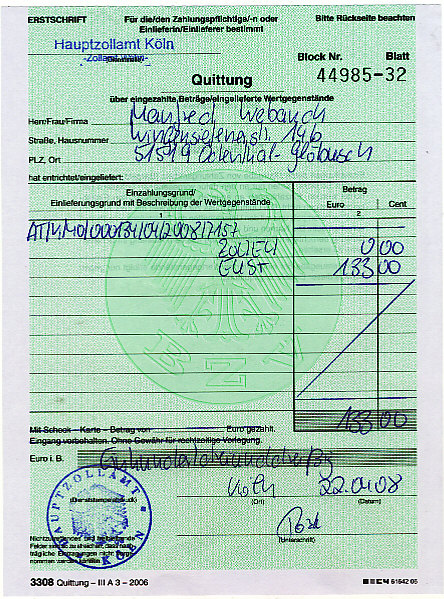 ERSTSCHRIFT Für die/den Zahlungspflichtige/-n oder Einlieferin/Einlieferer bestimmt Bitte Rückseite beachten
Hauptzollamt Köln
-Zollamt Wahn-
Block Nr. Blatt
44985-32
Quittung
über eingezahlte Beträge/eingelieferte Wertgegenstände
Herr/Frau/Firma Manfred
Straße, Hausnummer 14b
PLZ, Ort 51519 Odenthal-Glöbusch
hat entrichtet/eingeliefert:
Einzahlungsgrund/ Betrag
Einlieferungsgrund mit Beschreibung der Wertgegenstände Euro Cent
1 2
ZOLLEU 0 00
EUSt 133 00
133 00
Mit Scheck – Karte – Betrag von Euro gezahlt.
Eingang vorbehalten. Ohne Gewähr für rechtzeitige Vorlegung.
Euro i. B.
HAUPTZOLLAMT KÖLN
(Dienststempelabdruck)
Köln 22.04.08
(Ort) (Datum)
(Unterschrift)
3308 Quittung – III A 3 – 2006